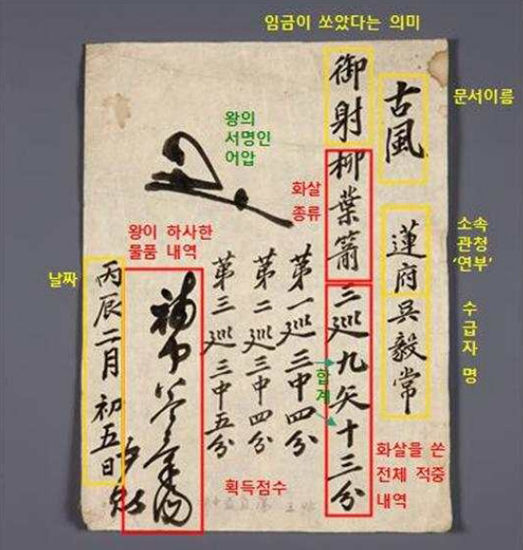 임금이 쏘았다는 의미
문서이름
古風
소속
관청
'연부'
蓮府
수급자 명
吳毅常
御射柳葉箭三巡九矢十三分
화살
종류
화살을 쏜
전체 적중
내역
합계
第一巡三中四分
第二巡三中四分
第三巡三中五分
획득점수
왕의
서명인
어압
왕이 하사한
물품 내역
날짜
丙辰二月初五日